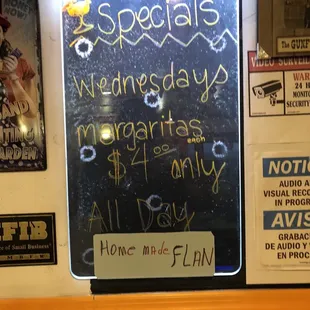 Specials
Wednesdays
margaritas
$4.00 only
All Day
HOME MADE FLAN
FIB
of Small Business
THE
VIDEO SURVEIL
WAR
24 H
MONITO
SECURITY
NOTIC
AUDIO A
VISUAL REC
IN PROGR
AVIS
GRABAC
DE AUDIO Y
EN PROC